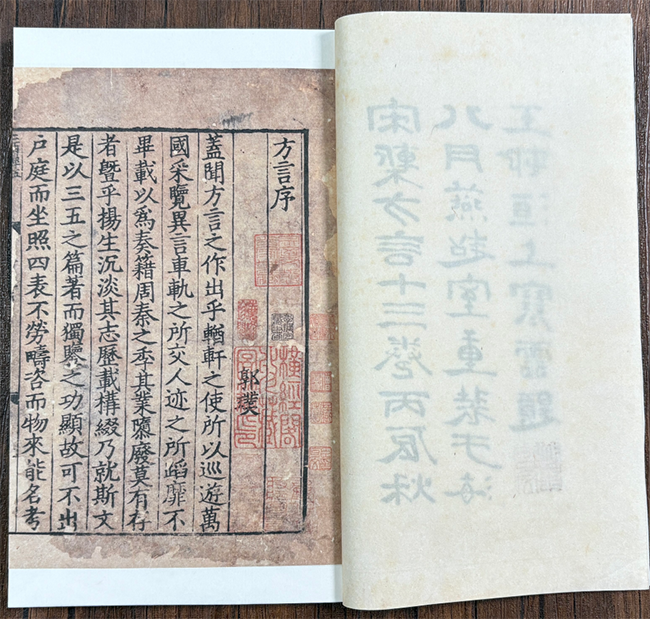 宋槧方言十三卷丙辰秋
八月燕超室重裝于海
上寒雲題
方言序
郭璞
橫經閣
蓋聞方言之作出乎輶軒之使所以巡遊萬
國采覽異言車軌之所交人迹之所蹈靡不
畢載以爲奏籍周秦之季其業隳廢莫有存
者曁乎揚生沉淡其志歷載構綴乃就斯文
是以三五之篇著而獨鑒之功顯故可不出
戶庭而坐照四表不勞疇咨而物來能名考